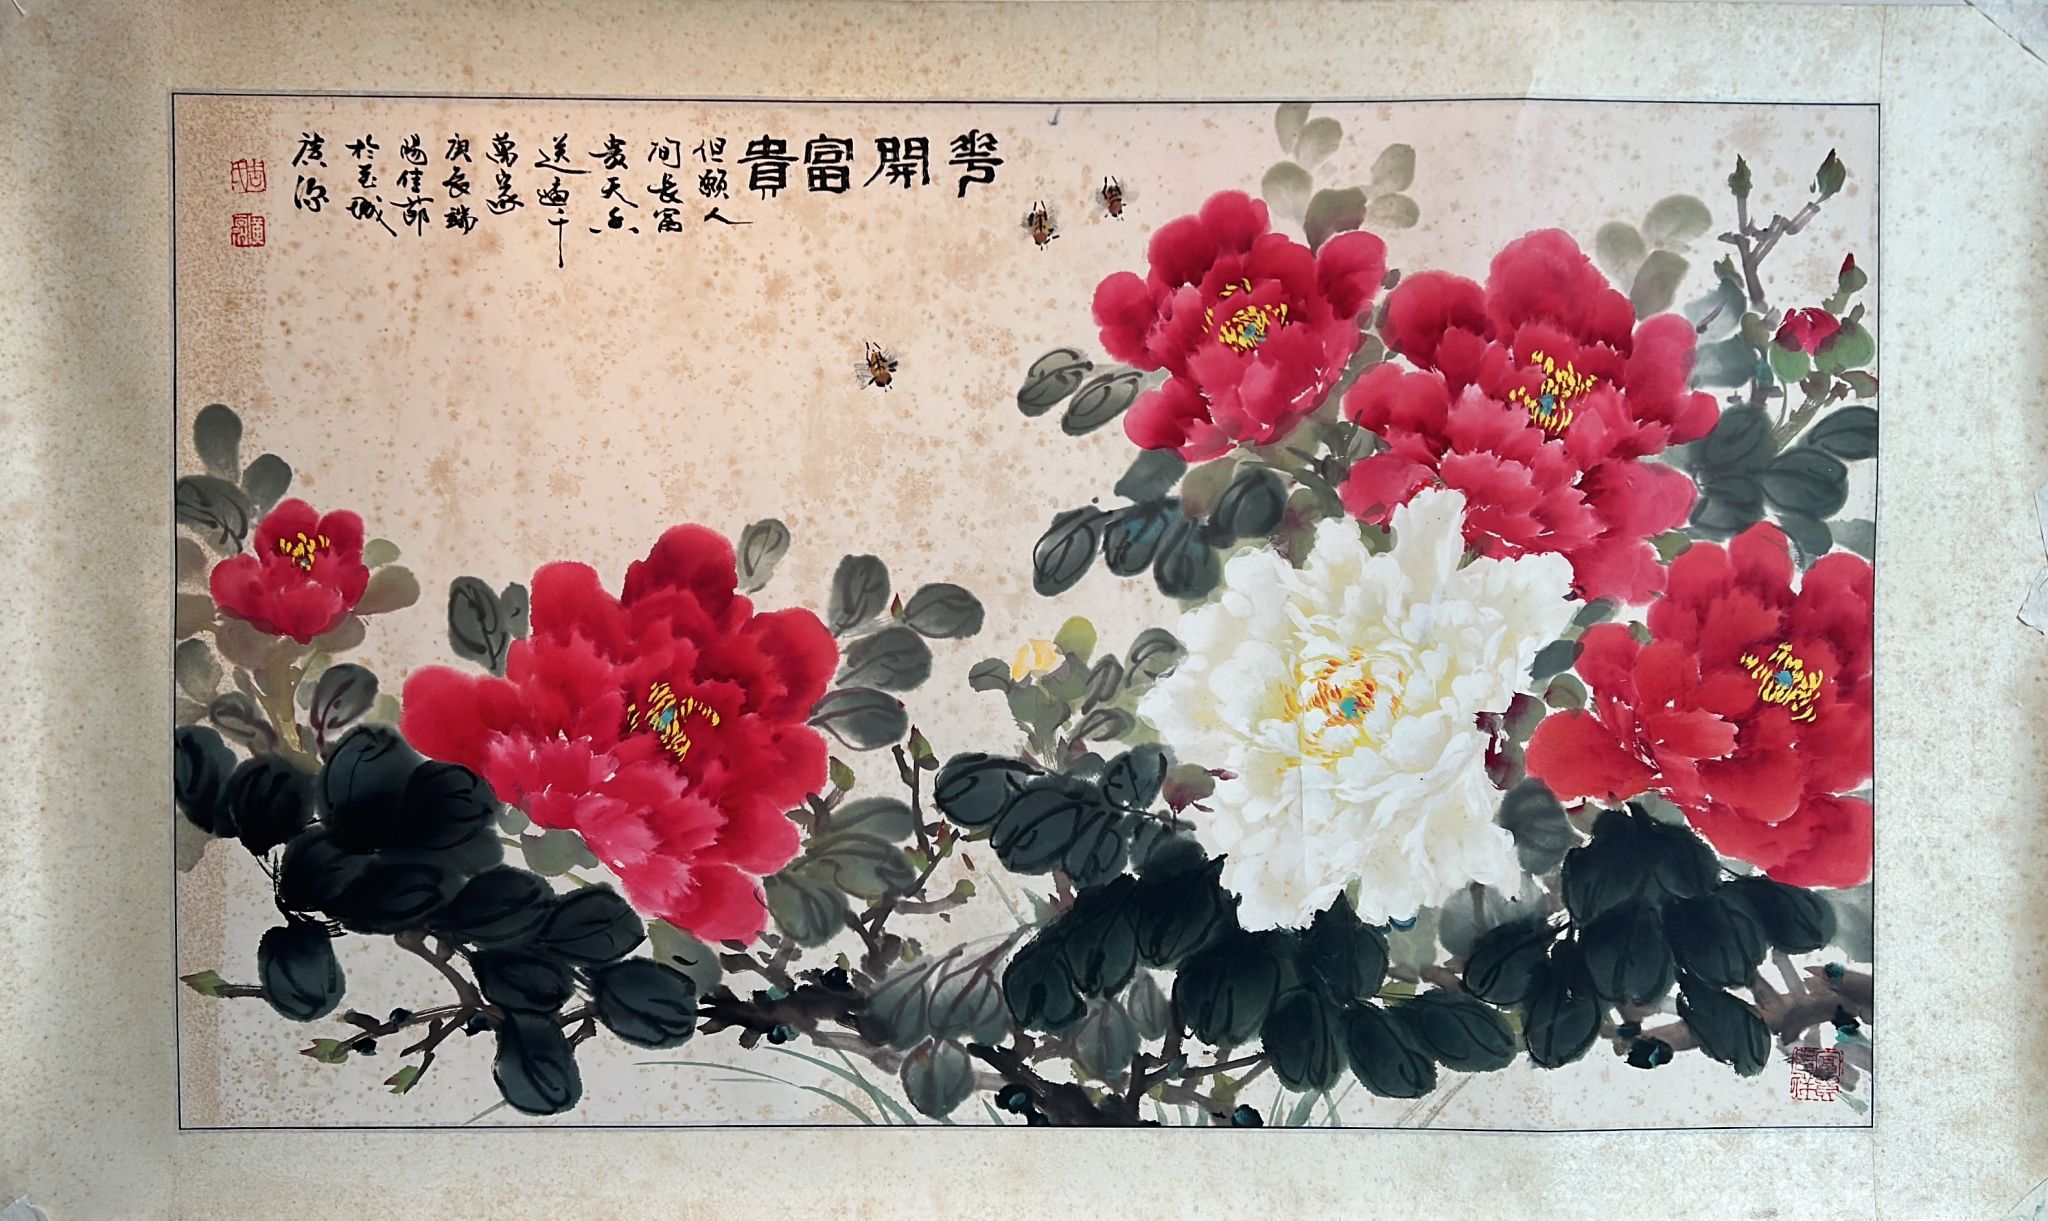 花開富貴
但願人
间長富
貴天香
送遍千
萬家
庚辰端
陽佳節
於玉城